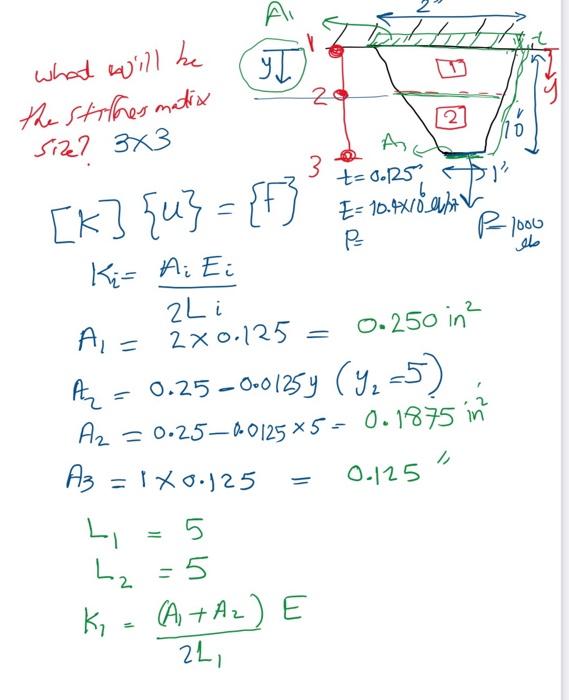 A₁
2"
what will be
the stiffness matrix
size? 3×3
1
y↓
t
1
y
2
2
10"
A₃
3
1"
t = 0.125"
E = 10.4×10⁶ lb/in²
P = 1000 lb
P=
[K] {u} = {F}
Kᵢ = Aᵢ Eᵢ / 2Lᵢ
A₁ = 2×0.125 = 0.250 in²
A₂ = 0.25 – 0.0125y (y₂ = 5)
A₂ = 0.25 – 0.0125×5 = 0.1875 in²
A₃ = 1×0.125 = 0.125 "
L₁ = 5
L₂ = 5
K₁ = (A₁ + A₂) E / 2L₁